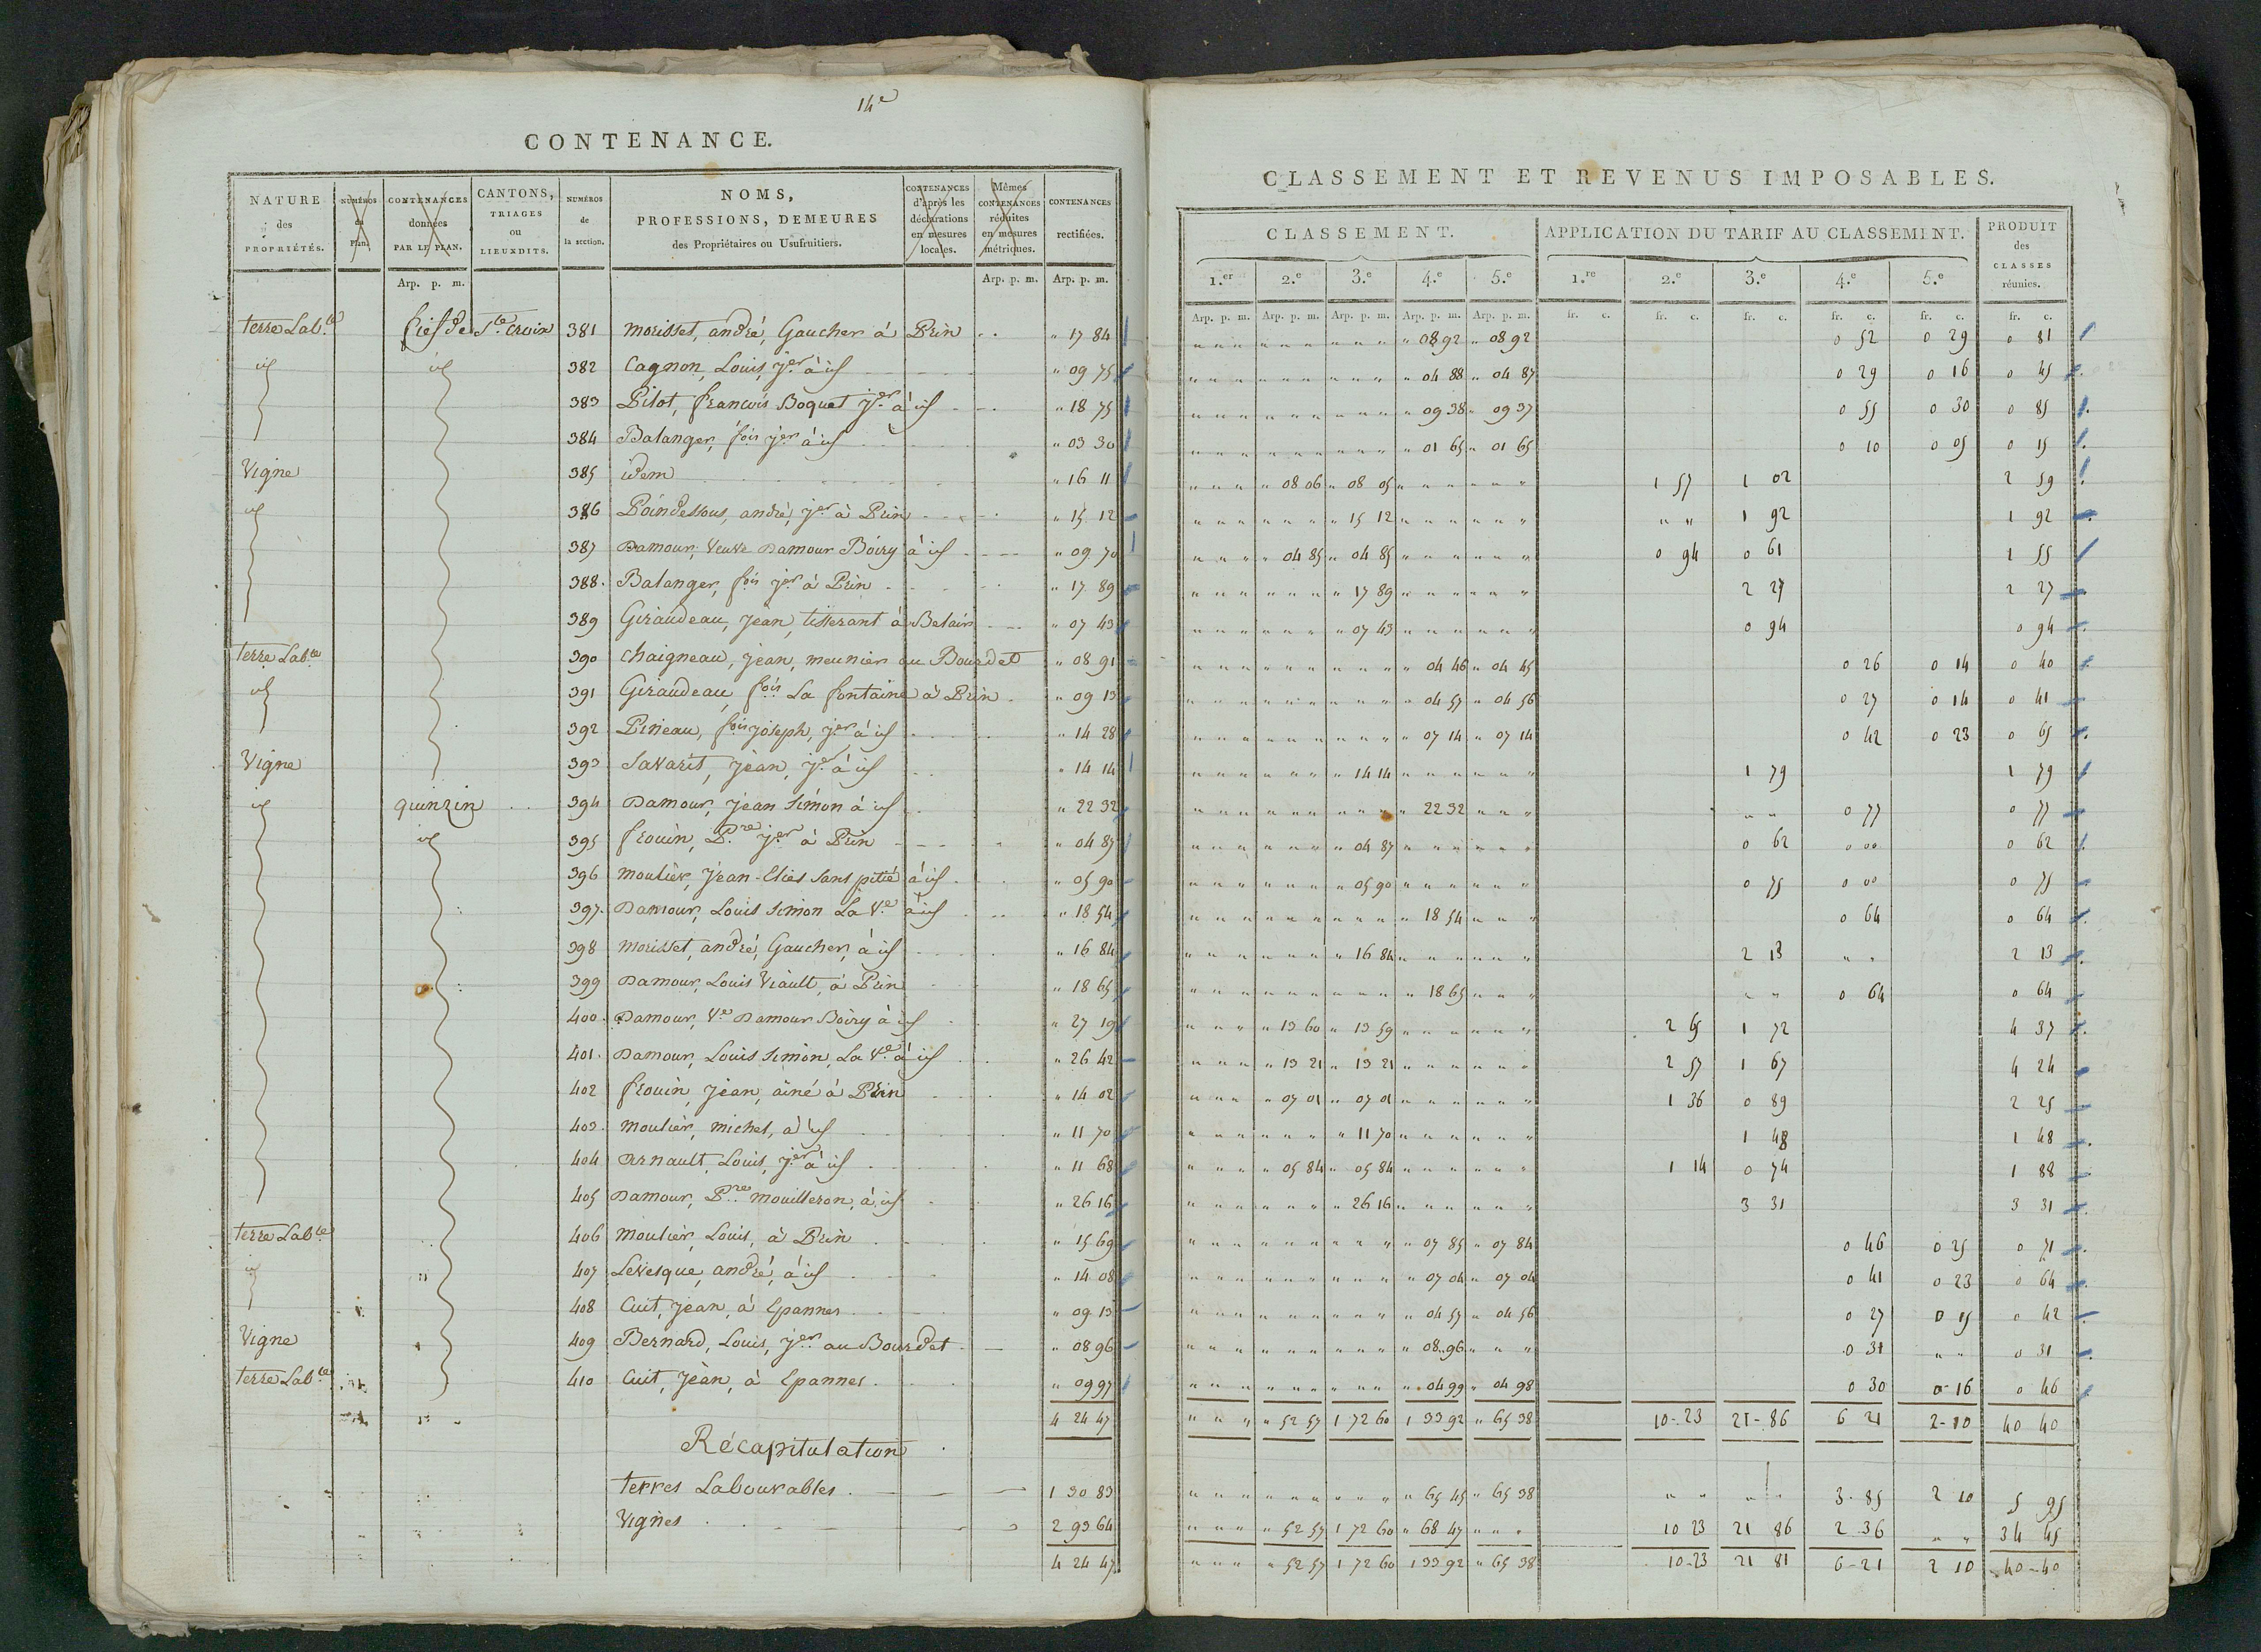 14e
CONTENANCE.
NATURE des PROPRIÉTÉS. NUMÉROS du Plan. CONTENANCES données PAR LE PLAN. CANTONS, TRIAGES ou LIEUXDITS. NUMÉROS de la section. NOMS, PROFESSIONS, DEMEURES des Propriétaires ou Usufruitiers. CONTENANCES d'après les déclarations en mesures locales. Mêmes CONTENANCES réduites en mesures métriques. CONTENANCES rectifiées.
Arp. p. m. Arp. p. m. Arp. p. m.
terre Lab.le fief de Ste Croix 381 Morisset, andré, Gaucher à Prin " 17 84
id id 382 Cagnon, Louis, jer à id " 09 75
383 Pilot, francois Boquet jer à id " 18 75
384 Balanger, fois jer à id " 03 30
Vigne 385 idem " 16 11
id 386 Poindessous, andré, jer à Prin " 15 12
387 Damour, Veuve Damour Boiry à id " 09 70
388. Balanger, fois jer à Prin " 17 89
389 Giraudeau, jean, tisserant à Belair " 07 43
terre Lab.le 390 Chaigneau, jean, meunier au Bourdet " 08 91
id 391 Giraudeau, fois La fontaine à Prin " 09 13
392 Pineau, fois joseph, jer à id " 14 28
Vigne 393 Savarit, jean, jer à id " 14 14
id quinzin 394 Damour, jean Simon à id " 22 32
id 395 frouin, Pre jer à Prin " 04 87
396 Moulier, jean-Elies Sans pitié à id " 05 90
397. Damour, Louis Simon La Ve à id " 18 54
398 Morisset, andré, Gaucher, à id " 16 84
399 Damour, Louis Viault, à Prin " 18 65
400. Damour, Ve Damour Boiry à id " 27 19
401. Damour, Louis Simon, La Ve à id " 26 42
402 frouin, jean, ainé à Prin " 14 02
403. Moulier, michel, à id " 11 70
404 Arnault, Louis, jer à id " 11 68
405 Damour, Pre Mouilleron, à id " 26 16
terre Lab.le 406 Moulier, Louis, à Prin " 15 69
id 407 Levesque, andré, à id " 14 08
408 Cuit, jean, à Epannes " 09 13
Vigne 409 Bernard, Louis, jer au Bourdet " 08 96
terre Lab.le 410 Cuit, jean, à Epannes " 09 97
4 24 47
Récapitulation
terres Labourables 1 30 83
Vignes 2 93 64
4 24 47
CLASSEMENT ET REVENUS IMPOSABLES.
CLASSEMENT. APPLICATION DU TARIF AU CLASSEMENT. PRODUIT des CLASSES réunies.
1.er 2.e 3.e 4.e 5.e 1.re 2.e 3.e 4.e 5.e
Arp. p. m. Arp. p. m. Arp. p. m. Arp. p. m. Arp. p. m. fr. c. fr. c. fr. c. fr. c. fr. c. fr. c.
" 08 92 " 08 92 0 52 0 29 0 81
" 04 88 " 04 87 0 29 0 16 0 45
" 09 38 " 09 37 0 55 0 30 0 85
" 01 65 " 01 65 0 10 0 05 0 15
" 08 06 " 08 05 1 57 1 02 2 59
" 15 12 " " 1 92 1 92
" 04 85 " 04 85 0 94 0 61 1 55
" 17 89 2 27 2 27
" 07 43 0 94 0 94
" 04 46 " 04 45 0 26 0 14 0 40
" 04 57 " 04 56 0 27 0 14 0 41
" 07 14 " 07 14 0 42 0 23 0 65
" 14 14 1 79 1 79
" 22 32 " " 0 77 0 77
" 04 87 0 62 0 00 0 62
" 05 90 0 75 0 00 0 75
" 18 54 0 64 0 64
" 16 84 2 13 " " 2 13
" 18 65 " " 0 64 0 64
" 13 60 " 13 59 2 65 1 72 4 37
" 13 21 " 13 21 2 57 1 67 4 24
" 07 01 " 07 01 1 36 0 89 2 25
" 11 70 1 48 1 48
" 05 84 " 05 84 1 14 0 74 1 88
" 26 16 3 31 3 31
" 07 85 " 07 84 0 46 0 25 0 71
" 07 04 " 07 04 0 41 0 23 0 64
" 04 57 " 04 56 0 27 0 15 0 42
" 08 96 0 31 " " 0 31
" 04 99 " 04 98 0 30 0 16 0 46
" " " " 52 57 1 72 60 1 33 92 " 65 38 10-23 21-86 6 21 2-10 40 40
" 65 45 " 65 38 " " " " 3-85 2 10 5 95
" 52 57 1 72 60 " 68 47 " " " 10 23 21 86 2 36 " " 34 45
" " " " 52 57 1 72 60 1 33 92 " 65 38 10-23 21 81 6-21 2 10 40-40